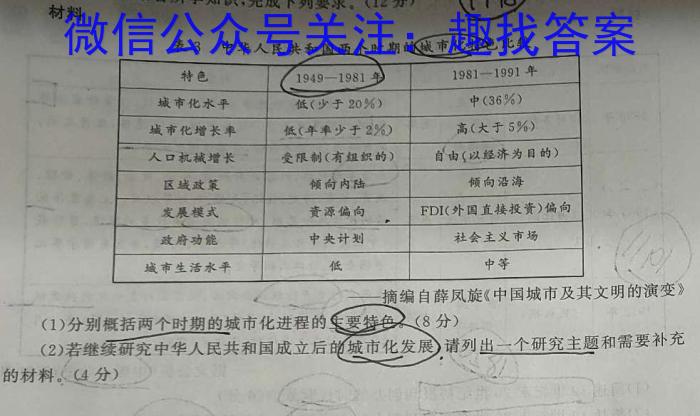 材料
完成下列要求。(12分)
微信公众号关注：趣找答案
中华人民共和国两个时期的城市化特色比较
特色 1949—1981年 1981—1991年
城市化水平 低(少于20%) 中(36%)
城市化增长率 低(年率少于2%) 高(大于5%)
人口机械增长 受限制(有组织的) 自由(以经济为目的)
区域政策 倾向内陆 倾向沿海
发展模式 资源偏向 FDI(外国直接投资)偏向
政府功能 中央计划 社会主义市场
城市生活水平 低 中等
——摘编自薛凤旋《中国城市及其文明的演变》
(1)分别概括两个时期的城市化进程的主要特色。(8分)
(2)若继续研究中华人民共和国成立后的城市化发展,请列出一个研究主题和需要补充
的材料。(4分)